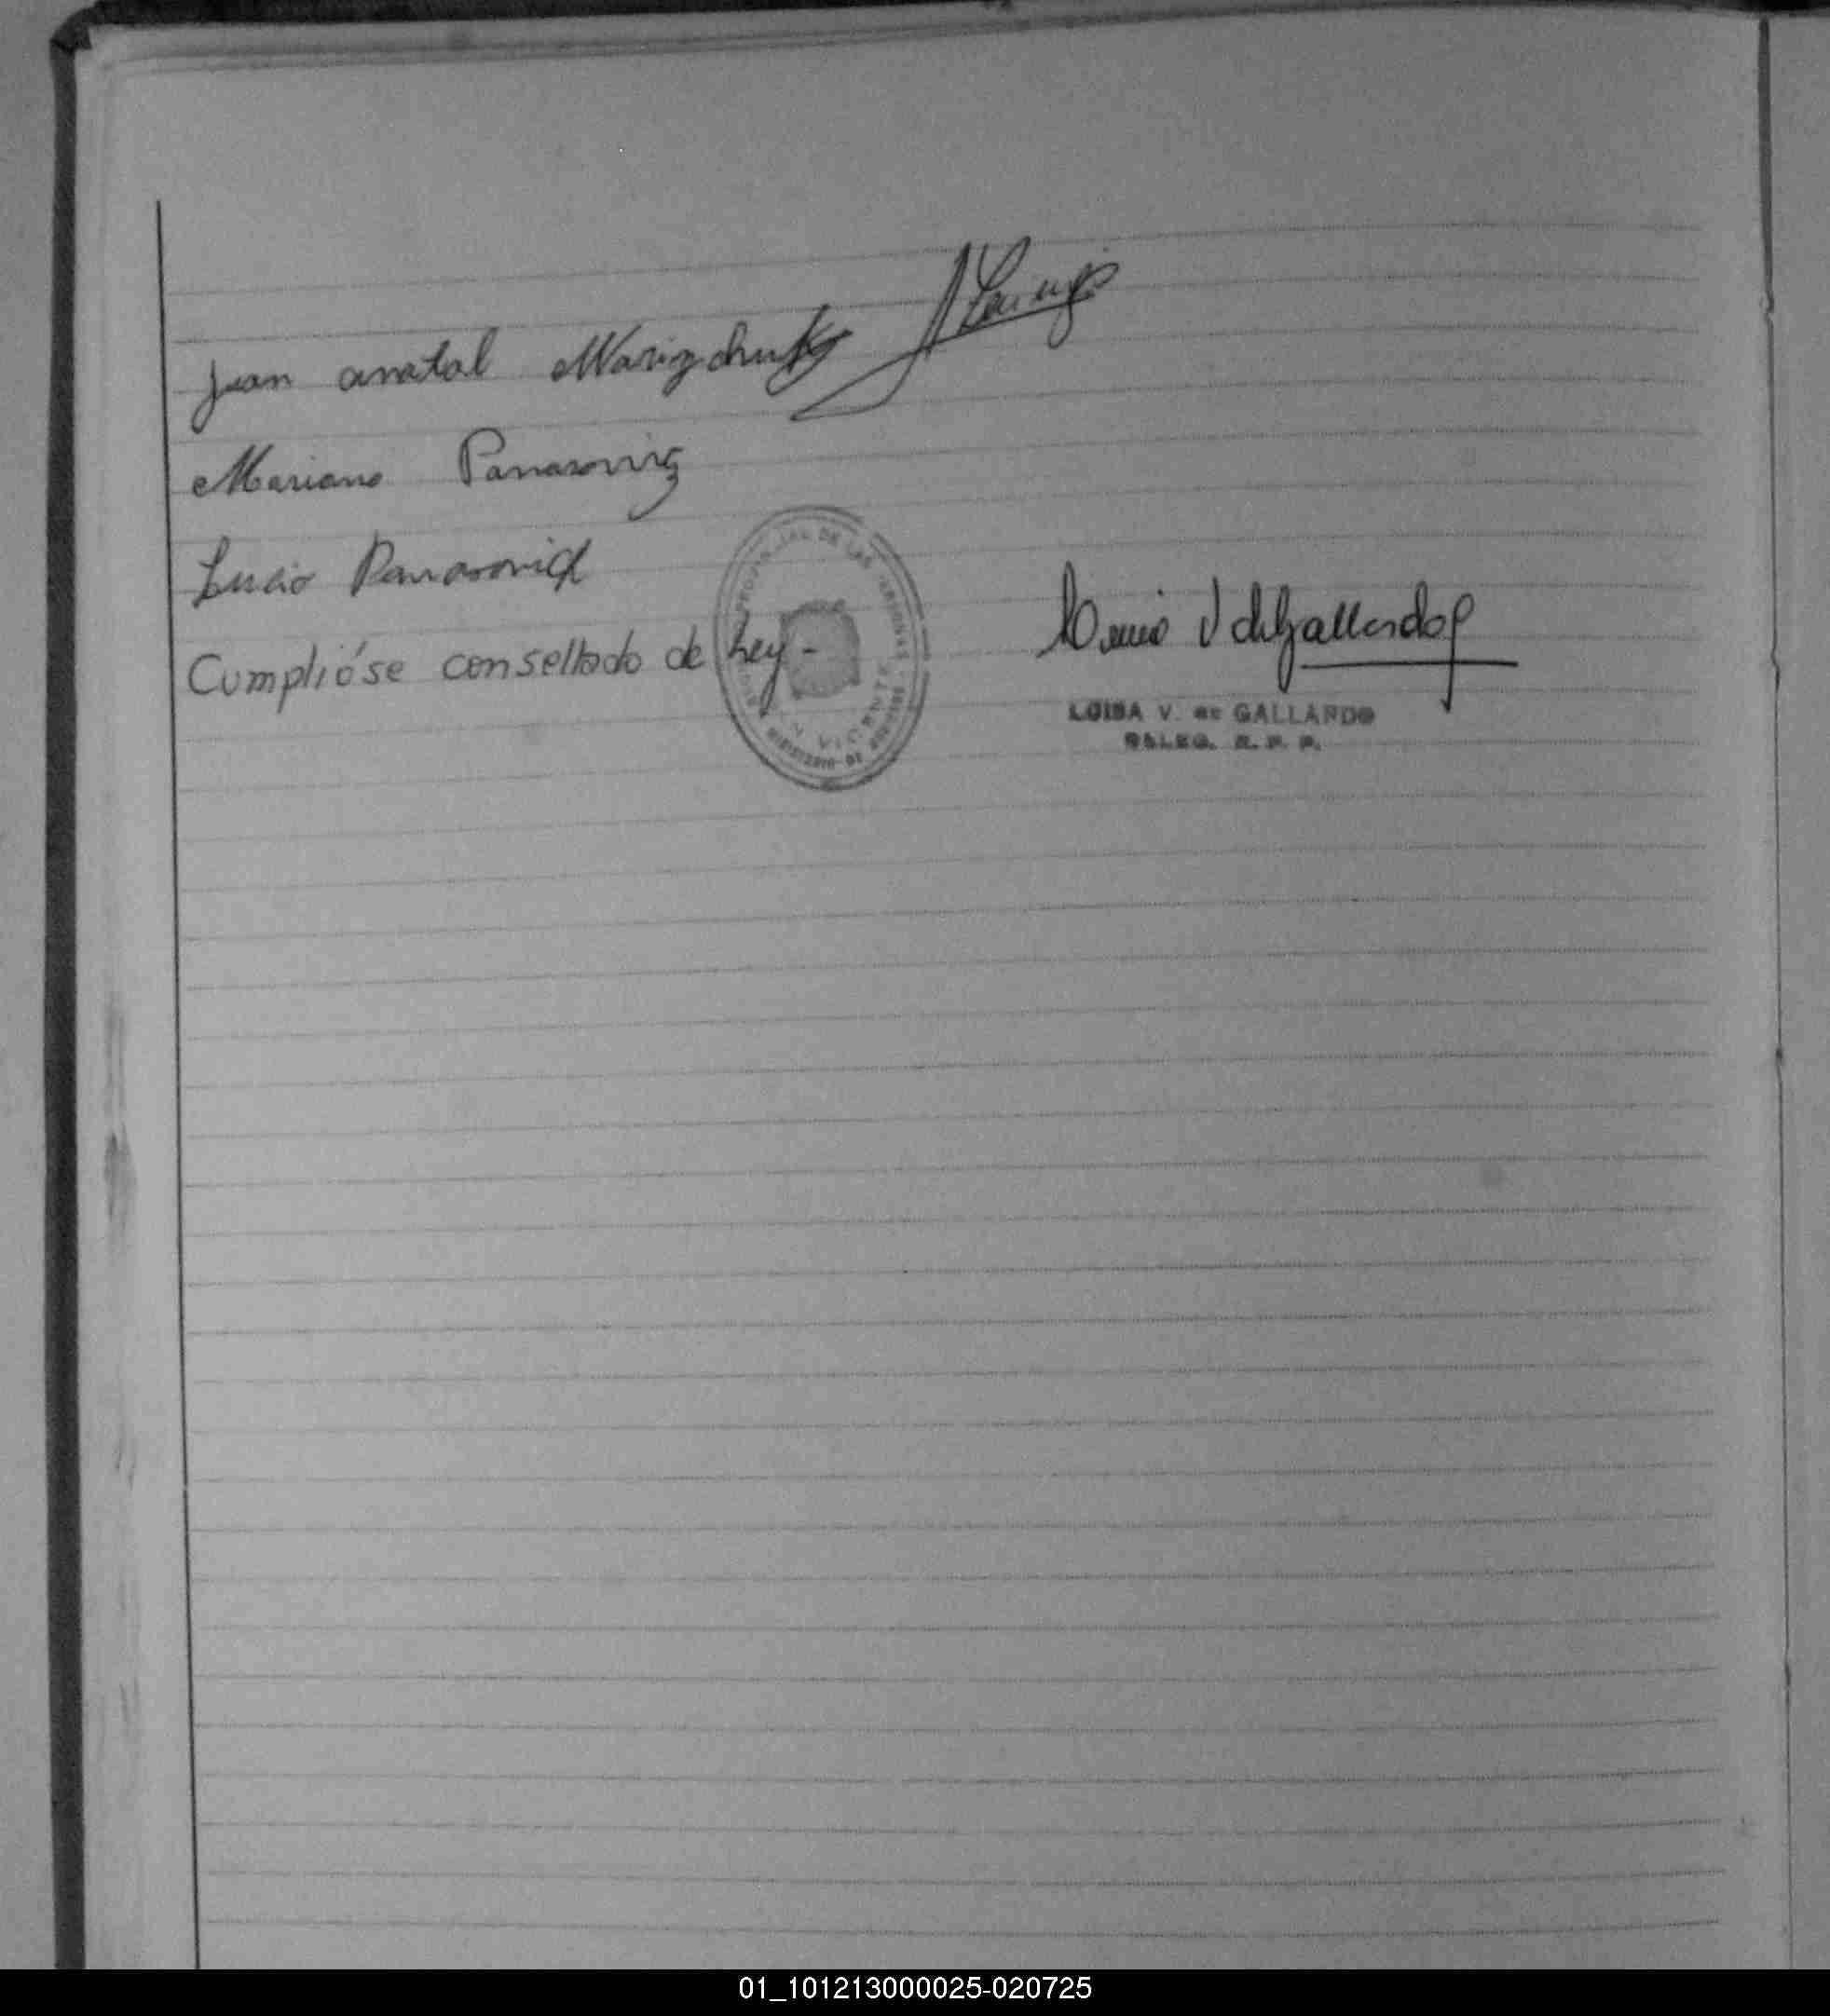 Juan anatal
Mariano Panasoviz
Lucio Panasovich
Cumplióse con sellado de Ley -
PROVINCIAL DE LAS PERSONAS
N VICENTE
MINISTERIO DE GOBIERNO
V de Gallardo
LUISA V. de GALLARDO
DELEG. R. P. P.
01_101213000025-020725